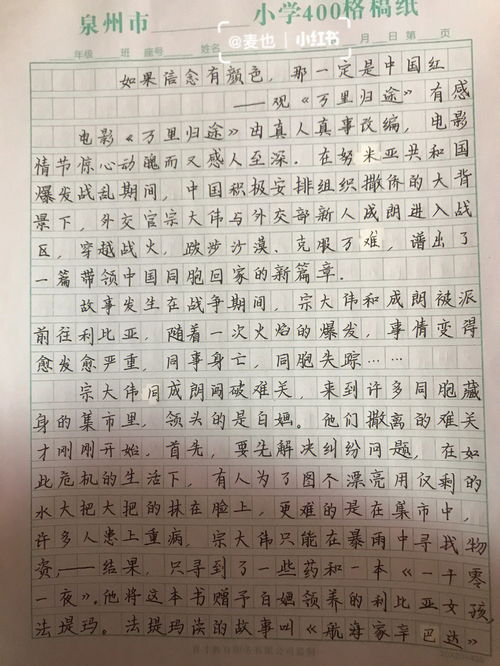 泉州市 小学400格稿纸
@麦也 | 小红书
年级 班 座号 姓名 月 日 第 页
如果信念有颜色，那一定是中国红
——观《万里归途》有感
电影《万里归途》由真人真事改编，电影
情节惊心动魄而又感人至深。在努米亚共和国
爆发战乱期间，中国积极安排组织撤侨的大背
景下，外交官宗大伟与外交部新人成朗进入战
区，穿越战火，跋涉沙漠、克服万难，谱出了
一篇带领中国同胞回家的新篇章．
故事发生在战争期间，宗大伟和成朗被派
前往利比亚，随着一次火焰的爆发，事情变得
愈发愈严重，同事身亡，同胞失踪……
宗大伟同成朗闯破难关，来到许多同胞藏
身的集市里，领头的是白婳。他们撤离的难关
才刚刚开始，首先，要先解决纠纷问题，在如
此危机的生活下，有人为了图个漂亮用仅剩的
水大把大把的抹在脸上，更难的是在集市中，
许多人患上重病，宗大伟只能在暴雨中寻找物
资，——结果，只寻到了一些药和一本《一千零
一夜》。他将这本书赠予白婳领养的利比亚女孩，
法提玛。法提玛读的故事叫《航海家辛巴达》